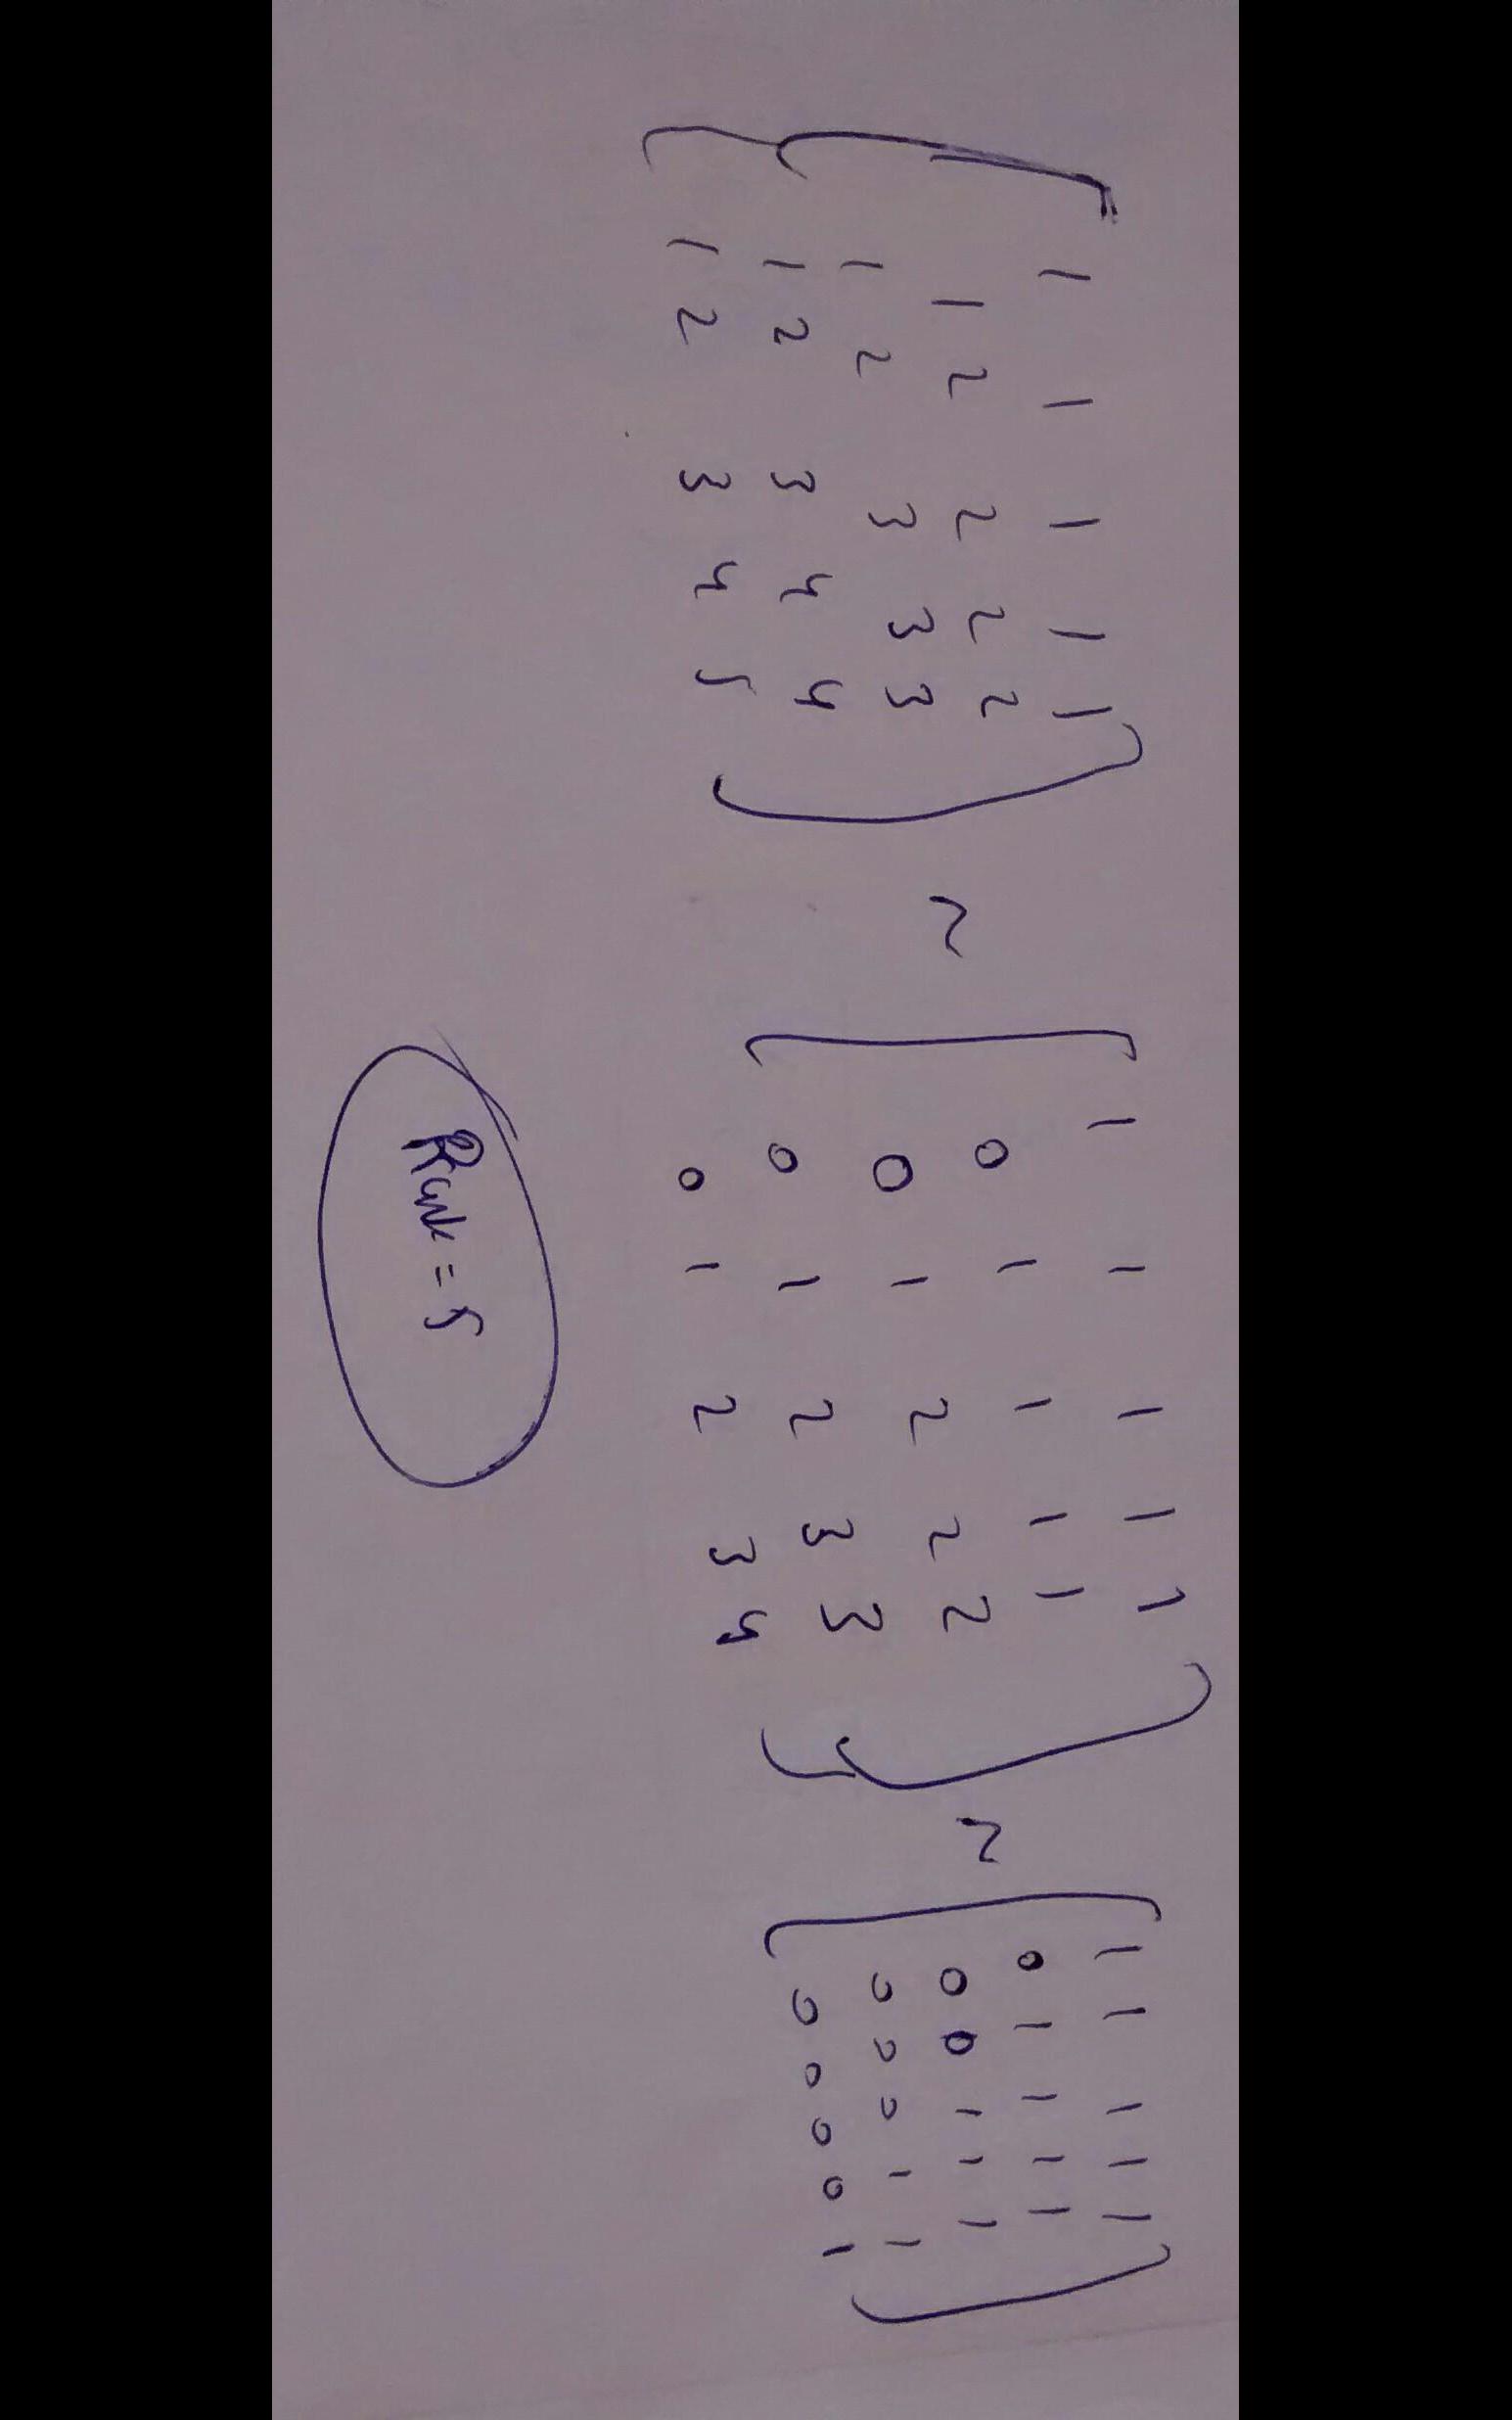 1 1 1 1 1 1 1 1 1 1 1 1 1 1 1
1 2 2 2 2 ~ 0 1 1 1 1 ~ 0 1 1 1 1
1 2 3 3 3 0 1 2 2 2 0 0 1 1 1
1 2 3 4 4 0 1 2 3 3 0 0 0 1 1
1 2 3 4 5 0 1 2 3 4 0 0 0 0 1
Rank = 5